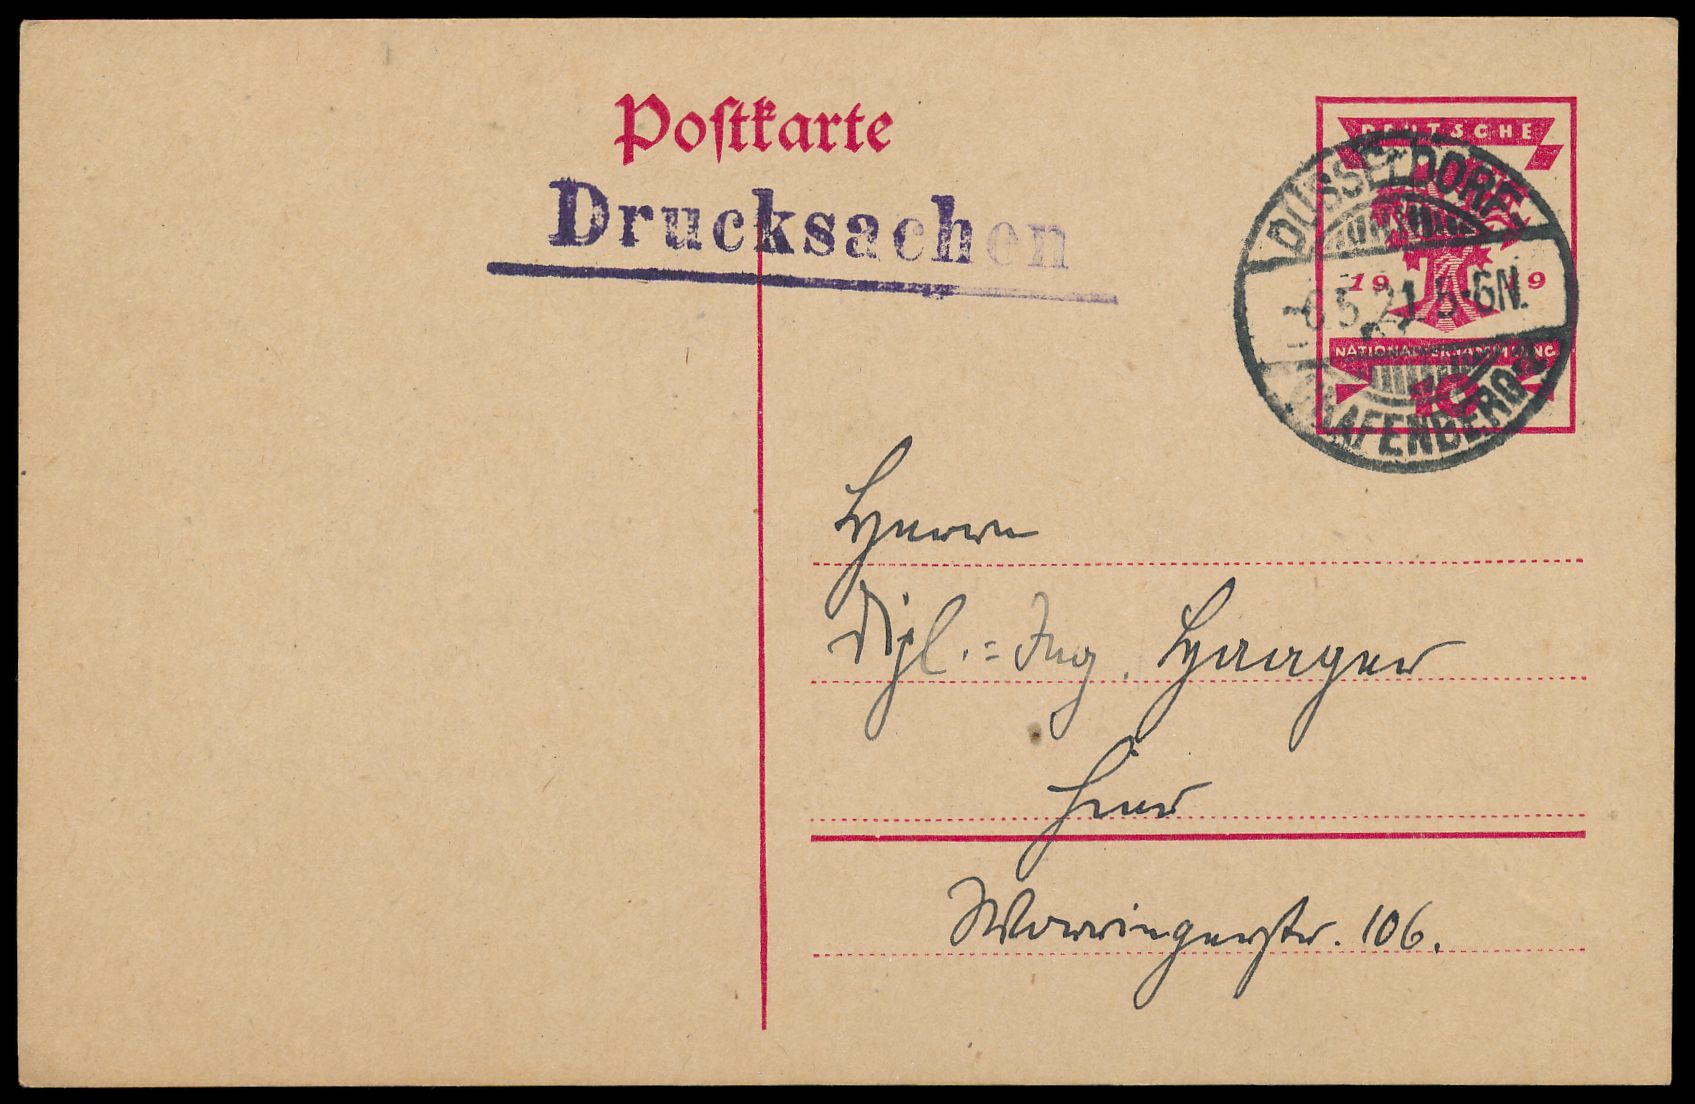 Postkarte
Drucksachen
DEUTSCHE
1919
NATIONALVERSAMMLUNG
10
DÜSSELDORF-
5.21. 5-6N.
GRAFENBERG
Herrn
Dipl.=Ing. Haager
Hier
Worringerstr. 106.